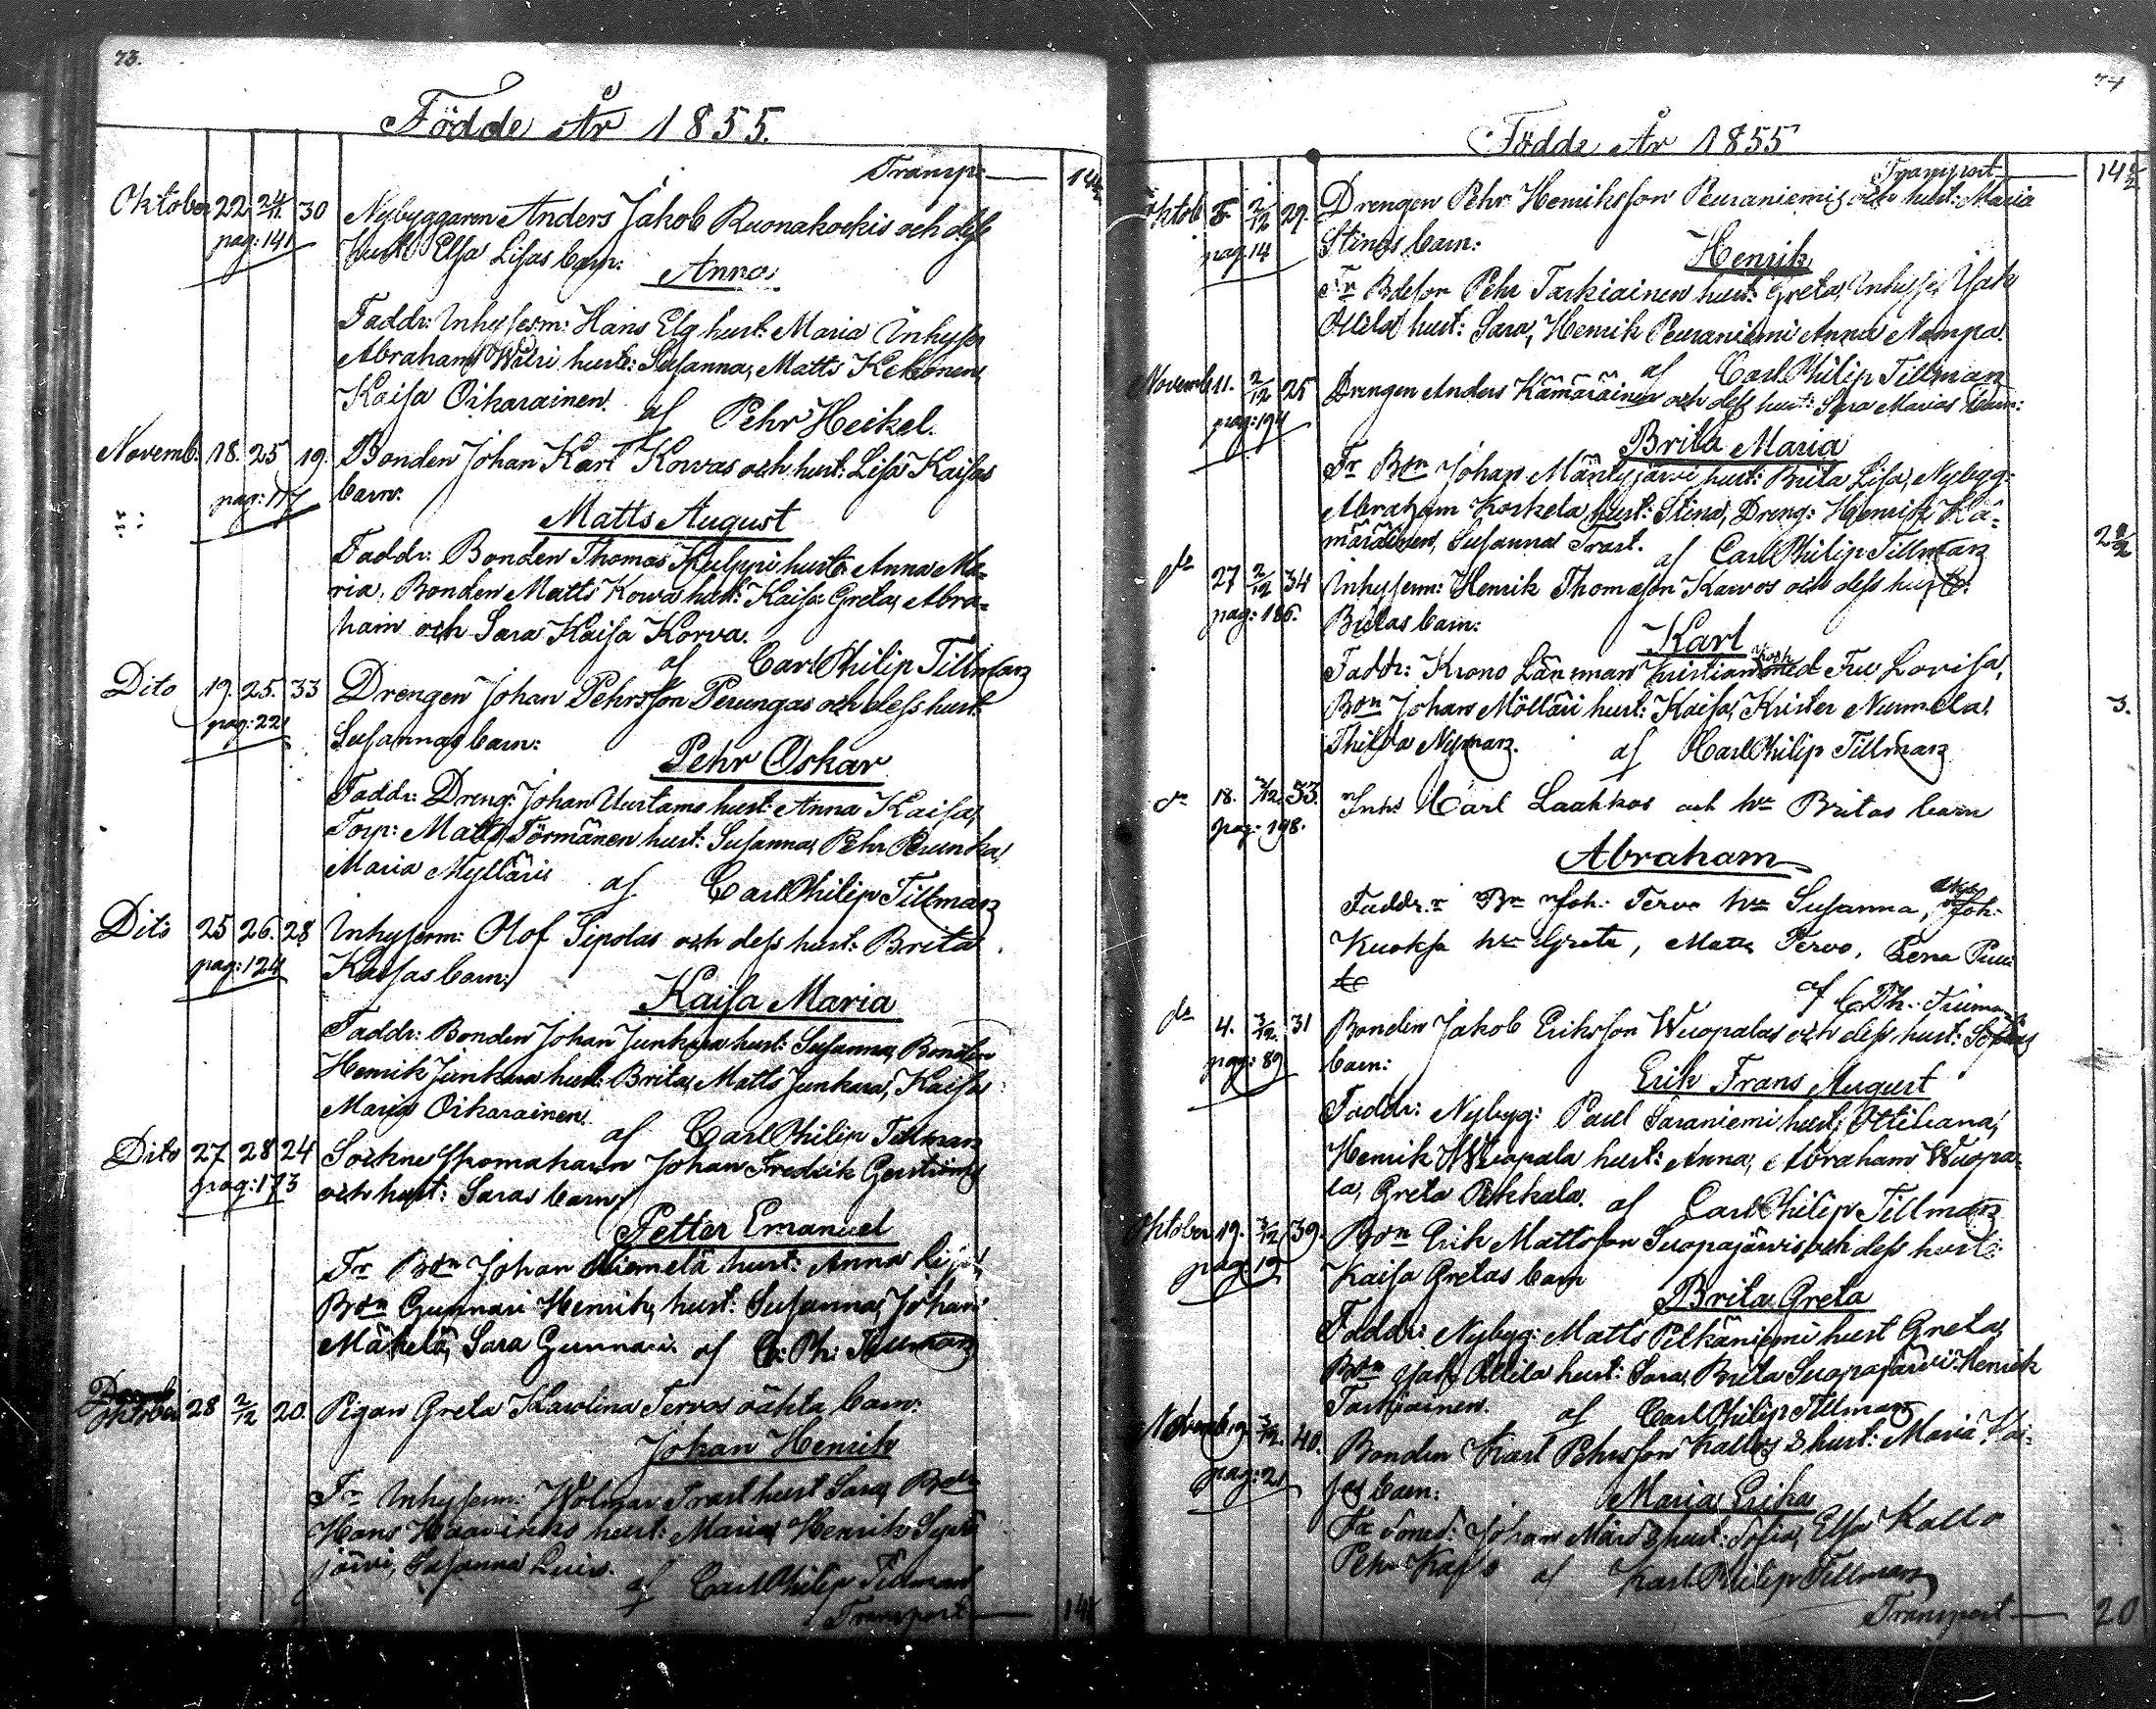 73.
Födde År 1855.
Transp:
Oktober 22 24/11 30 Nybyggaren Anders Jakob Ruonakoskis och dess
pag: 141 hust: Elsa Lisas barn:
Anna
Faddr: Inhysesm: Hans Elg hust: Maria Inhyses
Abraham hust: Susanna, Matts Kekonen,
Kaisa Oikarainen.
af Pehr Heikel.
Novemb. 18. 25 19. Bonden Johan Karl Kowas och hust: Lisa Kaisas
pag: 117 barn:
Matts August
Faddr: Bonden Thomas Kulppi hust: Anna Ma-
ria, Bonden Matts Kowa hust: Kaisa Greta, Abra-
ham och Sara Kaisa Korva.
af Carl Philip Tillman
Dito 19. 25. 33 Drengen Johan Pehrsson Perungas och dess hust:
pag: 221 Susannas barn:
Pehr Oskar
Faddr: Dreng: Johan Uurtamo hust: Anna Kaisa,
Torp: Matts Törmänen hust: Susanna, Pehr Perunka,
Maria Mylläri
af Carl Philip Tillman
Dito 25 26. 28 Inhysesm: Olof Sipolas och dess hust: Brita
pag: 124 Kaisas barn:
Kaisa Maria
Faddr: Bonden Johan Junkura hust: Susanna, Bonden
Henrik Junkura hust: Brita, Matts Junkura, Kaisa
Maria Oikarainen.
af Carl Philip Tillman
Dito 27 28 24 Sockne Johan Fredrik
pag: 173 och hust: Saras barn
Petter Emanuel
Fr Bdn Johan Niemelä hust: Anna
Bdn Gunnari Henrik, hust: Susanna, Johan
Mäkelä, Sara Gunnari. af C: Ph: Tillman
Oktober 28 2/12 20. Pigan Greta Karolina Tervos oäkta barn:
Johan Henrik
Fr Inhysesm: Wolmar Trast hust Sara, Bdn
Hans hust: Maria, Henrik
järvi, Susanna
af Carl Philip Tillman
Transport
74
Födde År 1855
Transport
Oktob 5. 2/12 29. Drengen Pehr Henriksson Peuraniemis och hust: Maria
pag. 14 Stinas barn:
Henrik
Fr Pehr Tarkiainen hust: Greta, Inhyses Isak
Ollila hust: Sara, Henrik Peuraniemi Anna Nampa.
af Carl Philip Tillman
Novemb 11. 2/12 25 Drengen Anders Kämäräinen och dess hust: Sara Marias barn:
pag: 194
Brita Maria
Fr Bdn Johan Mäntyjärvi hust: Brita Lisa, Nybygg:
Abraham Korkela hust: Stina, Dreng: Henrik Kä-
märäinen, Susanna Trast.
af Carl Philip Tillman
do 27 2/12 34 Inhysesm: Henrik Thomasson Karvos och dess hust:
pag: 186. Britas barn:
Karl
Faddr: Krono Länsman Kristian och Fru Lovisa,
Bdn Johan Möllari hust: Kaisa, Krister Nurmela,
Thilda Nyman.
af Carl Philip Tillman
3.
do 18. 3/12. 33. Inhs Carl Laakkos och hu Britas barn
pag: 198.
Abraham
Faddr.r Bn Joh: Tervo hu Susanna, Joh:
Kuoksa hu Greta, Matts Tervo, Lena
af C. Ph. Tillman
do 4. 3/12. 31 Bonden Jakob Eriksson Wuopalas och dess hust: Sofias
pag: 89 barn:
Erik Frans August
Faddr: Nybyg: Paul Saraniemi hust: Ottiliana,
Henrik Wuopala hust: Anna, Abraham Wuopa-
la, Greta Pekkala.
af Carl Philip Tillman
Oktober 19. 3/12 39. Bdn Erik Mattsson Suopajärvis och dess hust:
pag: 19 Kaisa Gretas barn
Brita Greta
Faddr: Nybyg: Matts Pitkäniemi hust Greta,
Bdn Isak Ollila hust: Sara, Brita Suopajärvi Henrik
Tarkiainen.
af Carl Philip Tillman
Novemb 19. 3/12. 40. Bonden Karl Pehrsson Kallos & hust: Maria Kai-
pag: 21 sas barn:
Maria Erika
Fr Johan & hust: Sofia, Elsa Kallo
Pehr Kallo
af Karl Philip Tillman
Transport 20